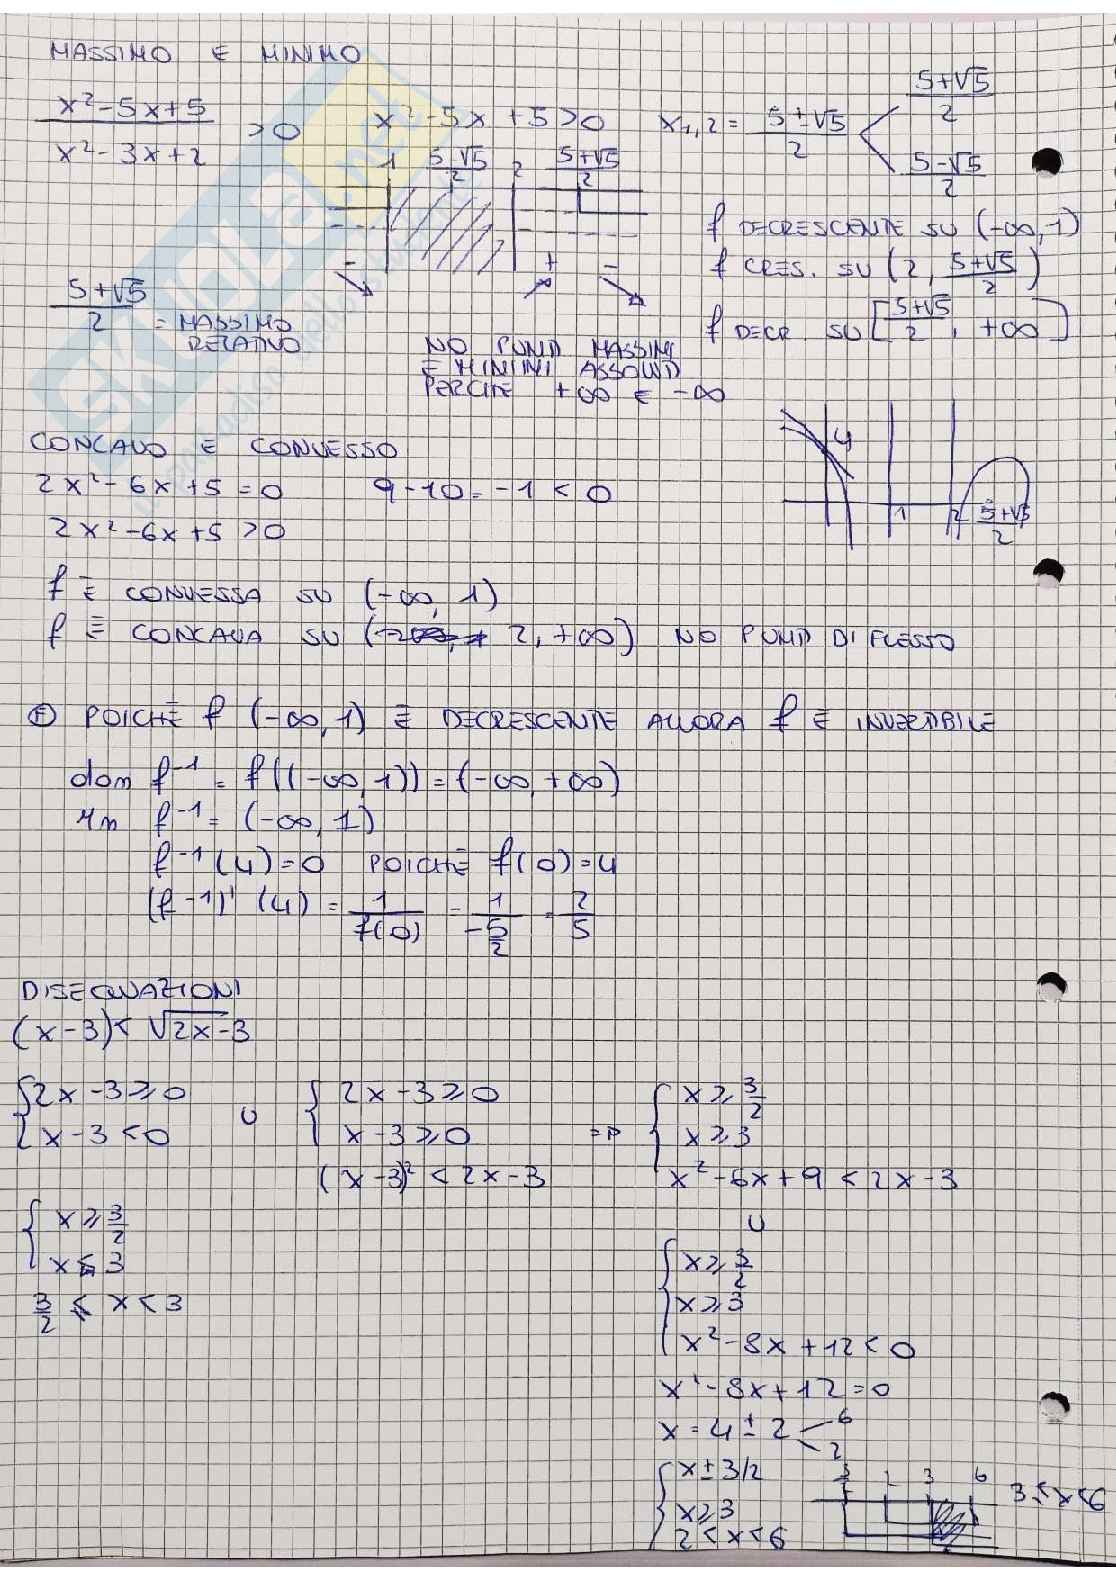 MASSIMO E MINIMO
x²-5x+5 / x²-3x+2 >0   x²-5x+5>0   x₁,₂ = 5±√5 / 2   5+√5 / 2   5-√5 / 2
1   5-√5 / 2   2   5+√5 / 2
f DECRESCENTE SU (-∞,1)
- + -
f CRES. SU (2, 5+√5 / 2)
5+√5 / 2 = MASSIMO RELATIVO
f DECR. SU [5+√5 / 2, +∞)
NO PUNTI MASSIMI
E MINIMI ASSOLUTI
PERCHE +∞ E -∞
4
1 2 5+√5 / 2
CONCAVO E CONVESSO
2x²-6x+5=0   9-10=-1<0
2x²-6x+5>0
f È CONVESSA SU (-∞, 1)
f È CONCAVA SU (2, +∞) NO PUNTI DI FLESSO
Ⓕ POICHÈ f (-∞,1) È DECRESCENTE ALLORA f È INVERTIBILE
dom f⁻¹ = f((-∞,1))=(-∞,+∞)
Im f⁻¹ = (-∞,1)
f⁻¹(4)=0 POICHÈ f(0)=4
(f⁻¹)' (4) = 1 / f(0) = 1 / -5/2 = 2 / 5
DISEQUAZIONI
(x-3)< √2x-3
{2x-3⩾0   ∪   {2x-3⩾0   =>   {x⩾3/2
x-3<0   x-3⩾0   x⩾3
(x-3)²<2x-3   x²-6x+9<2x-3
∪
{x⩾3/2
x⩽3
3/2 ⩽ x<3
{x⩾3/2
x⩾3
x²-8x+12<0
x²-8x+12=0
x=4±2   6   2
{x±3/2
x⩾3
2<x<6
3 6   3⩽x<6